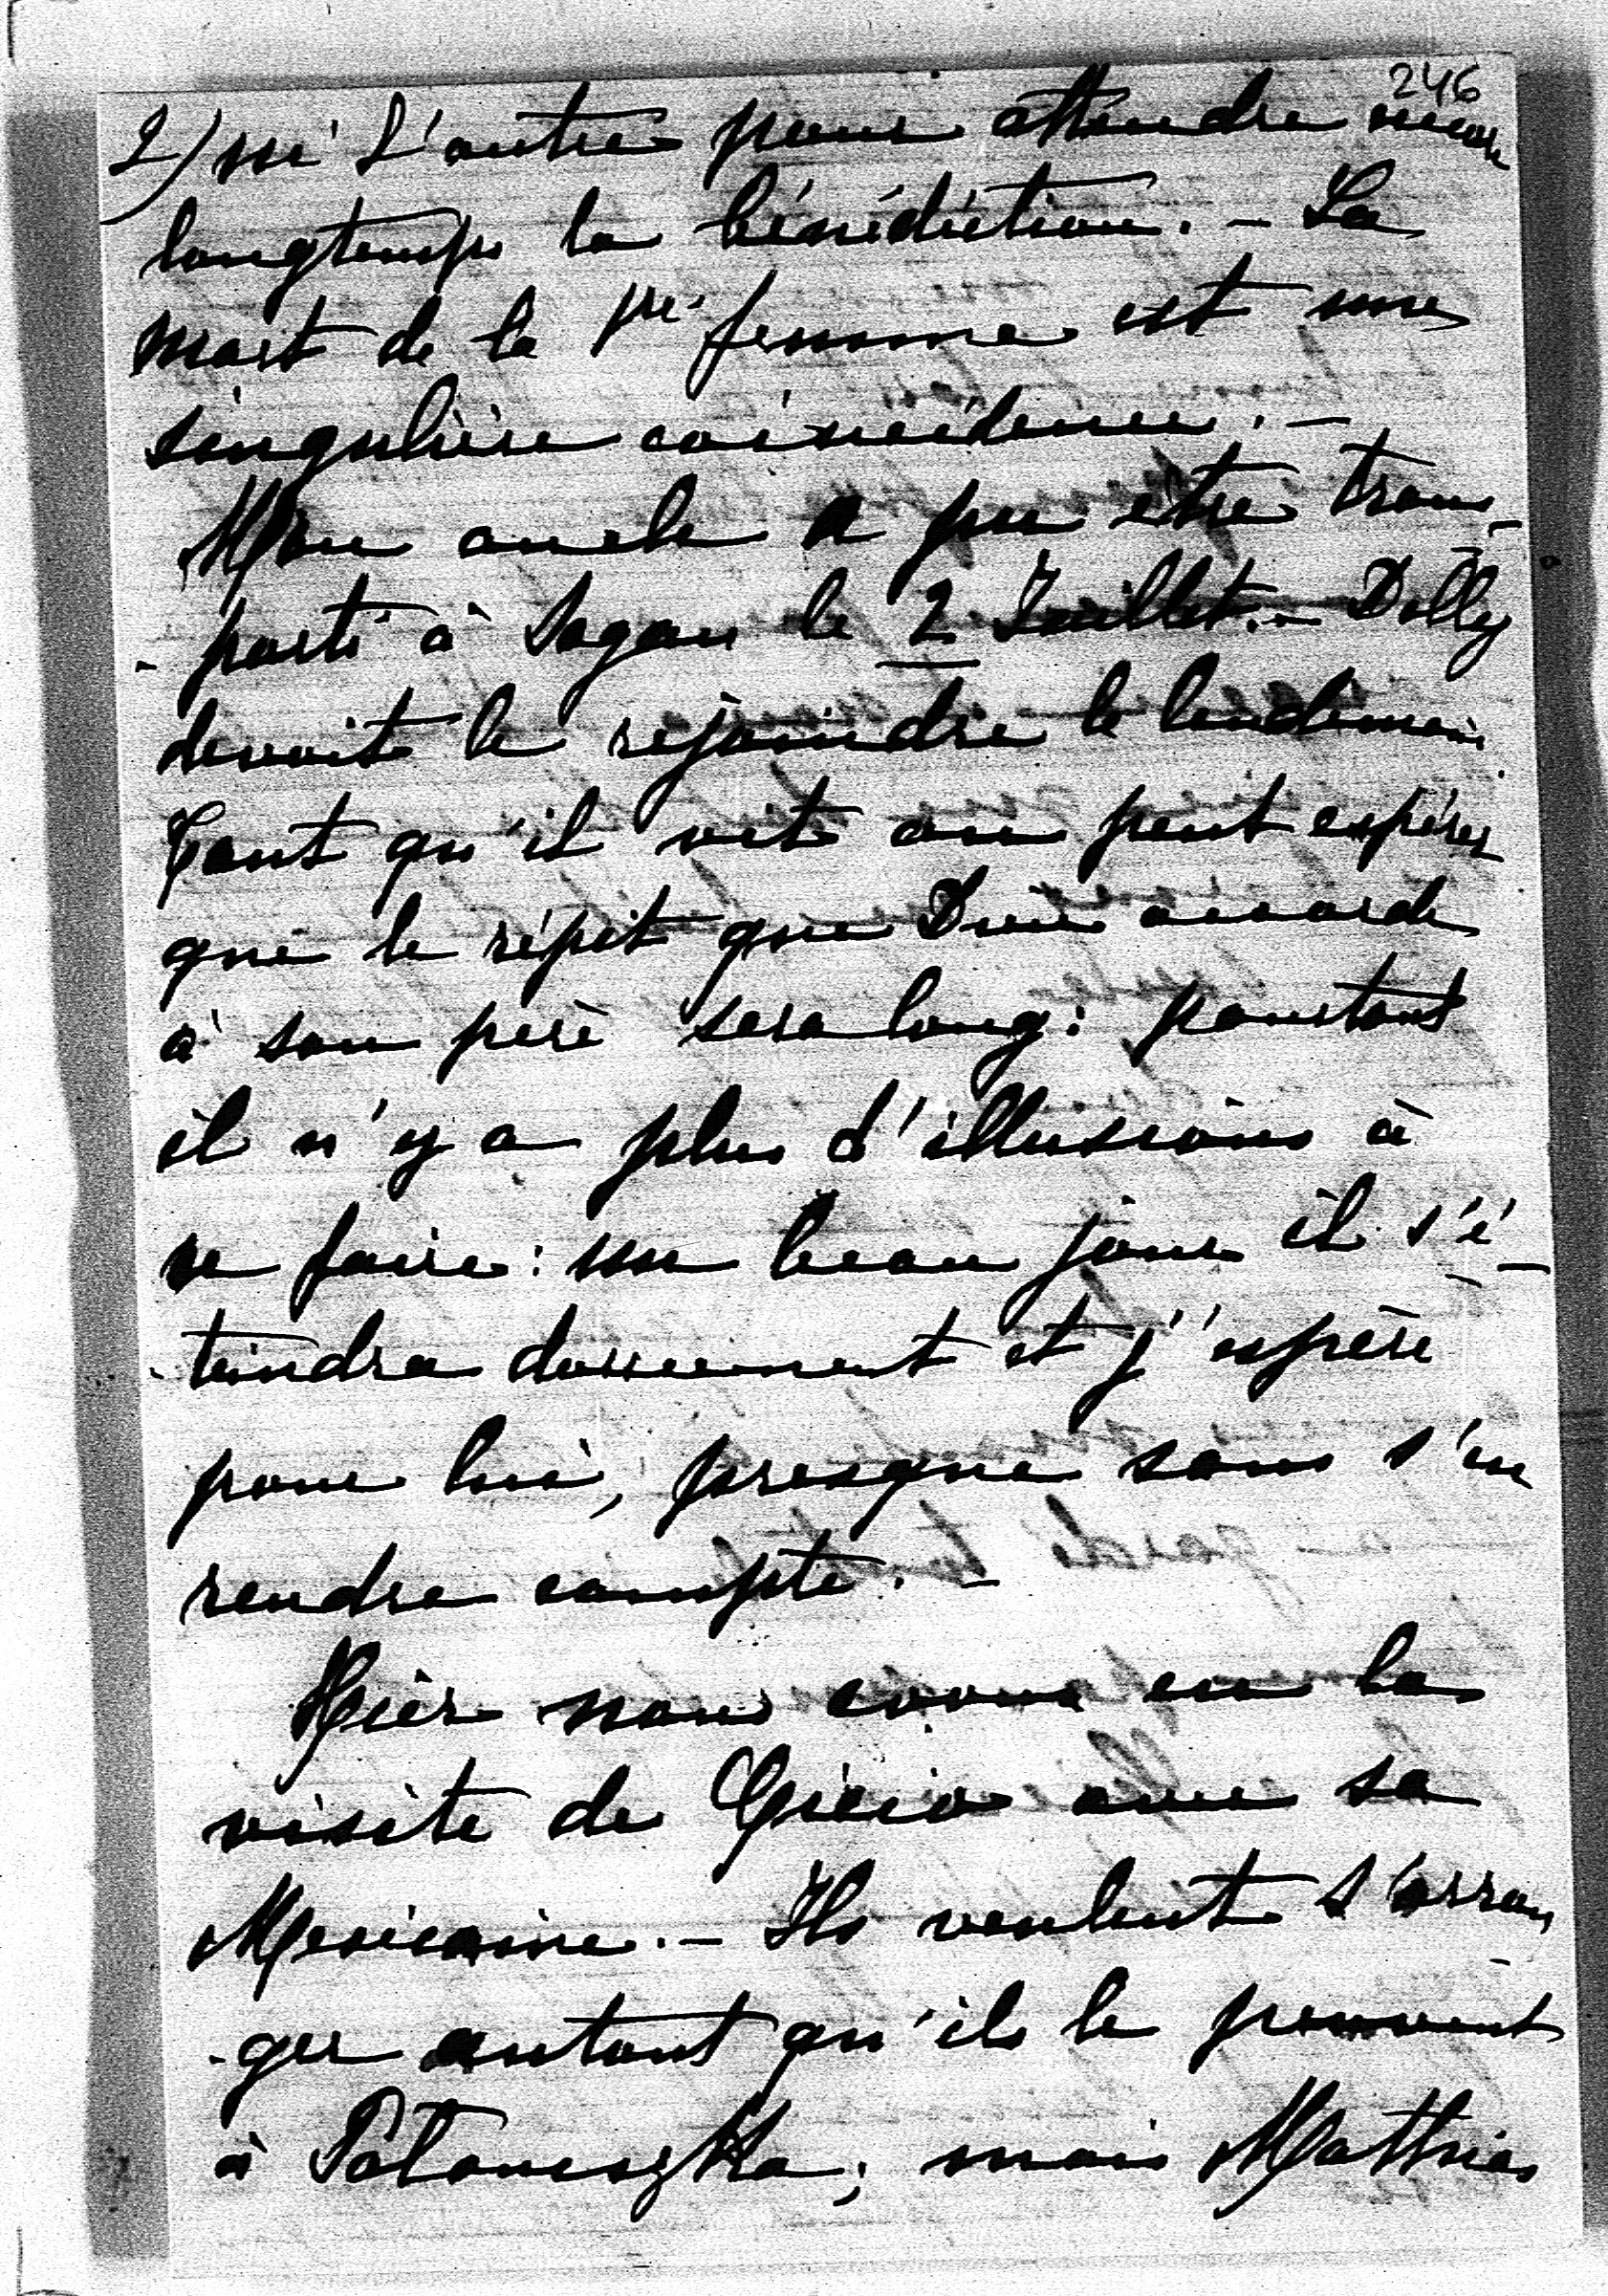 246
2) ni l'autre pour attendre encore
longtemps la bénédiction. - La
mort de la 1re femme est une
singulière coïncidence. -
Mon oncle a pu etre trans-
-porté à Sagan le 2 Juillet. - Dolly
devait le rejoindre le lendemain.
Tant qu'il vit on peut espérer
que le répit que Dieu accorde
à son père sera long: pourtant
il n'y a plus d'illusions à
se faire: un beau jour il s'é-
-teindra doucement et j'espère
pour lui, presque sans s'en
rendre compte. -
Hier nous avons eu la
visite de avec sa
Mexicaine. - Ils veulent s'arran-
-ger autant qu'ils le peuvent
à mais Mathias